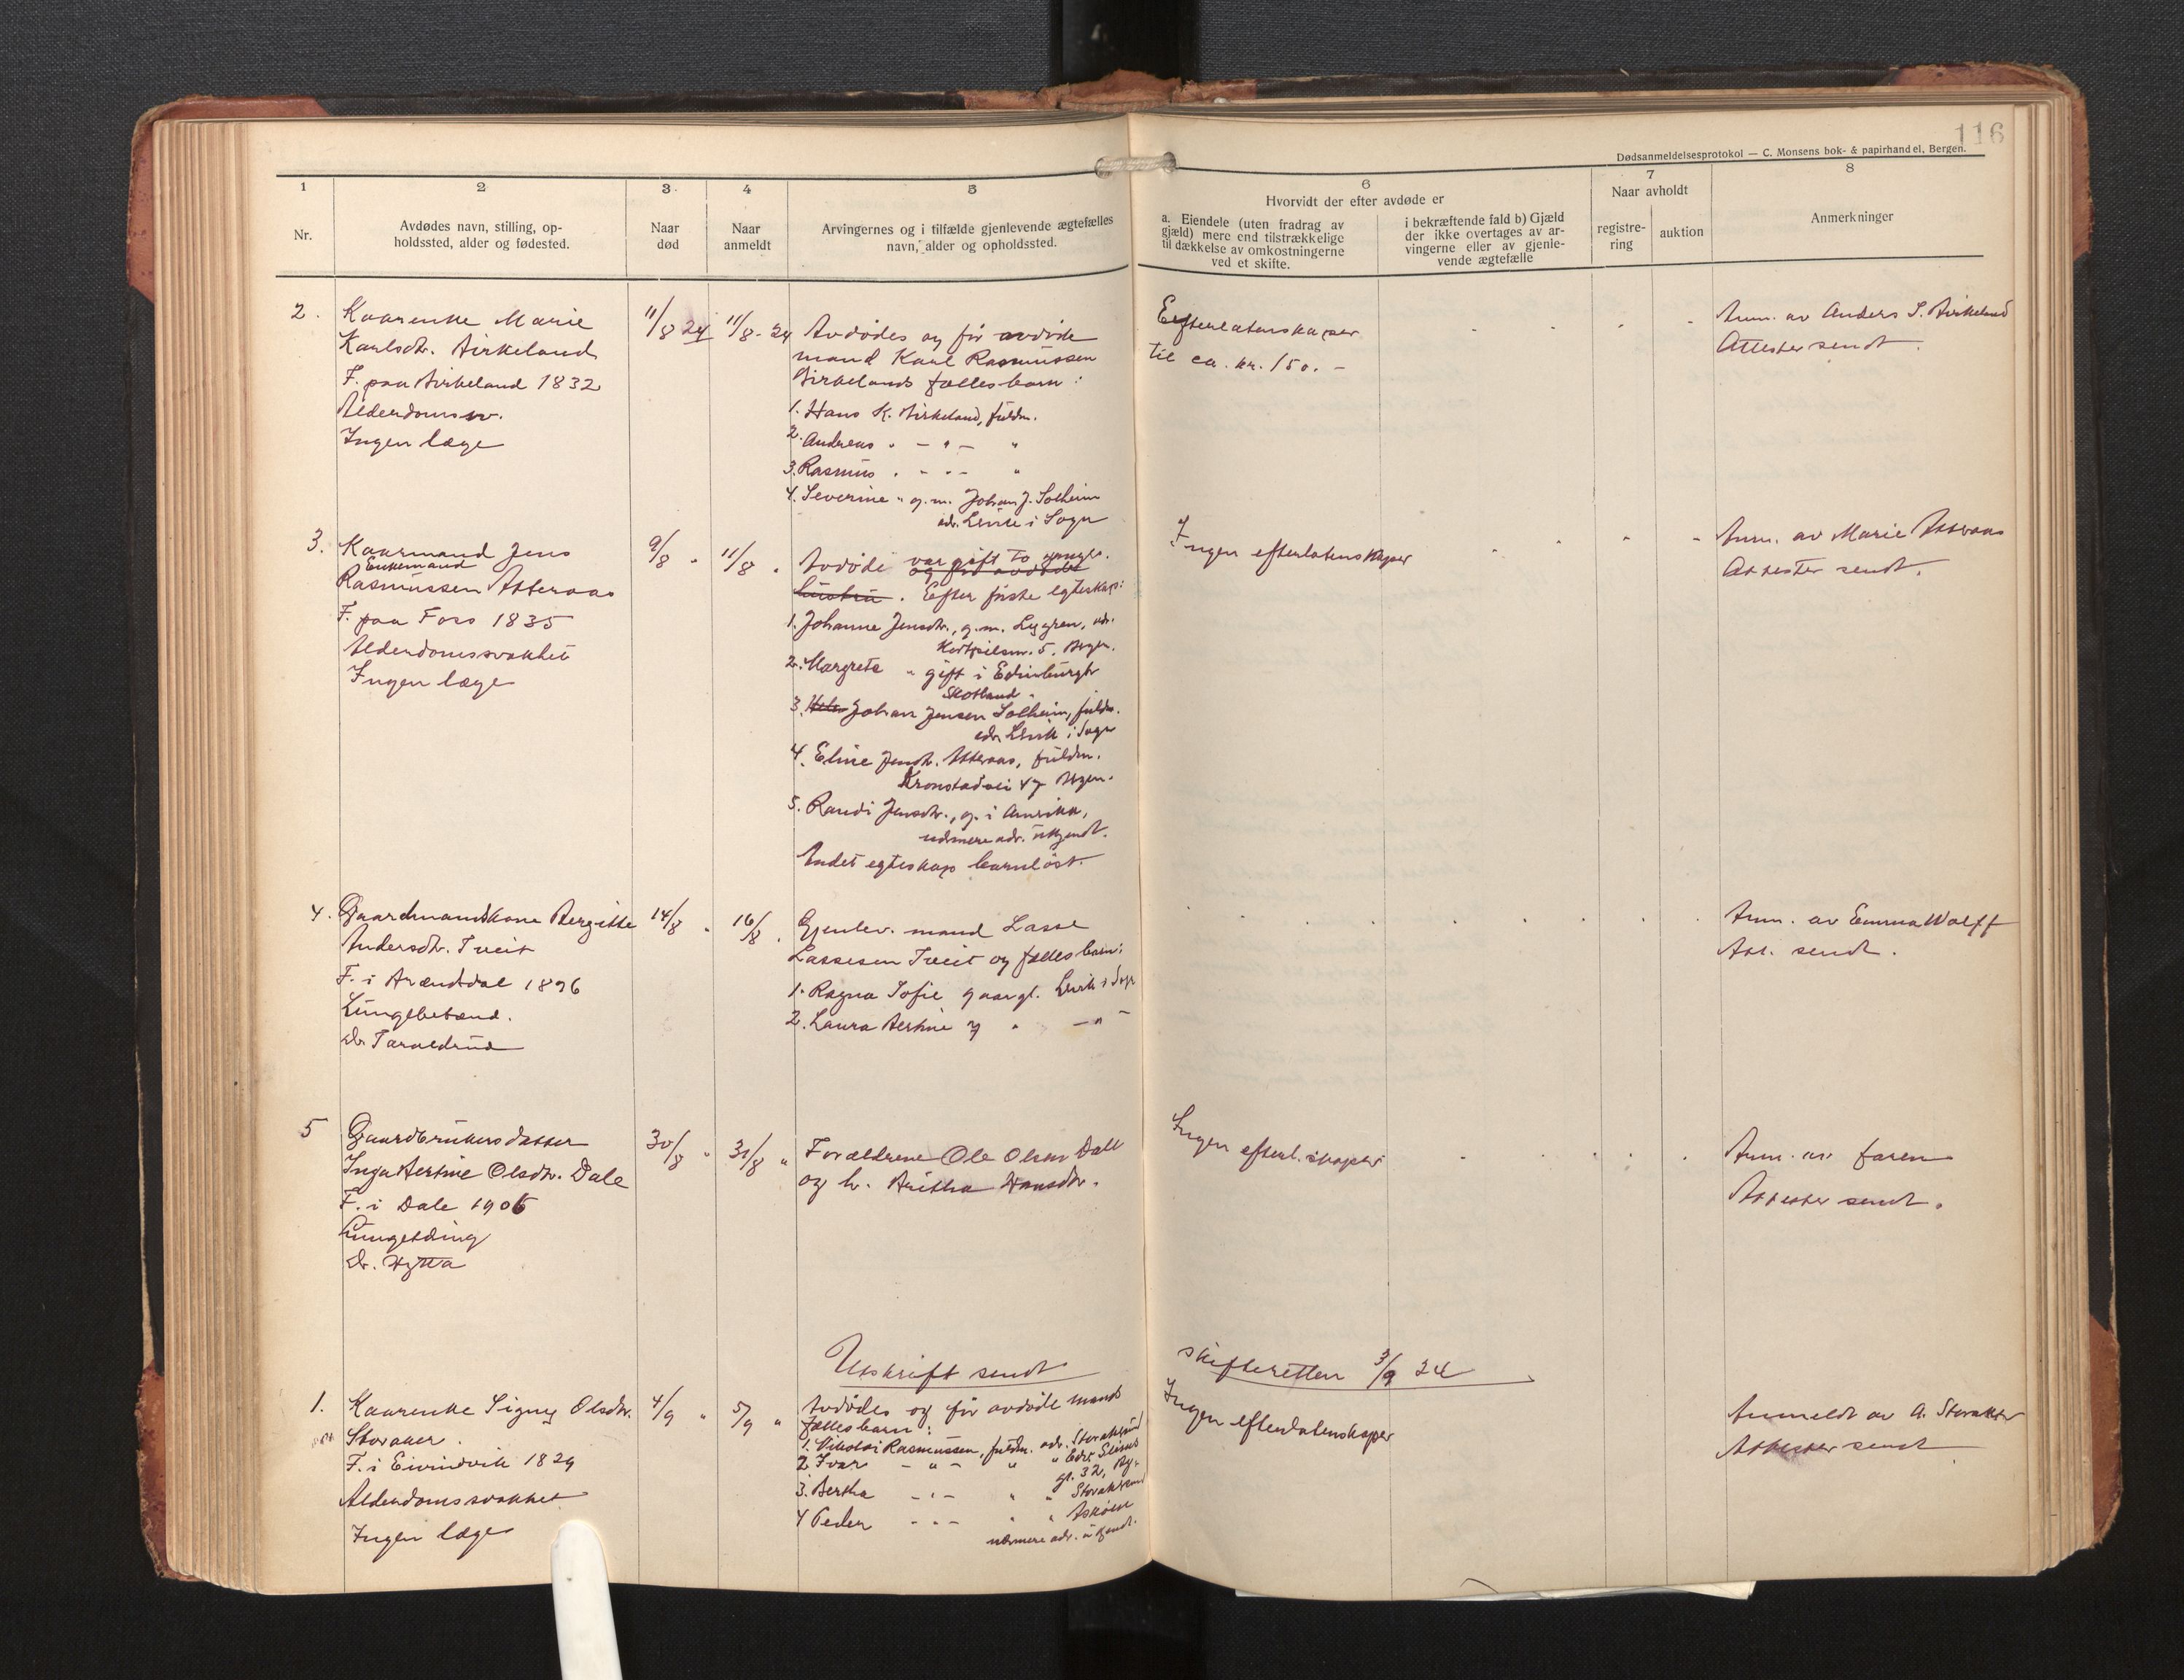 116
Dødsanmeldelsesprotokol — C. Monsens bok- & papirhandel, Bergen.
1
2
3
4
5
6
7
8
Nr.
Avdødes navn, stilling, op-
holdssted, alder og fødested.
Naar
død
Naar
anmeldt
Arvingernes og i tilfælde gjenlevende ægtefælles
navn, alder og opholdssted.
Hvorvidt der efter avdøde er
a. Eiendele (uten fradrag av
gjæld) mere end tilstrækkelige
til dækkelse av omkostningerne
ved et skifte.
i bekræftende fald b) Gjæld
der ikke overtages av ar-
vingerne eller av gjenle-
vende ægtefælle
Naar avholdt
registre-
ring
auktion
Anmerkninger
2.
Kaarenke Marie
Karlsdtr. Birkeland
F. paa Birkeland 1832
Alderdomssv.
Ingen læge
11/8 24
11/8 - 24
Avdødes og før avdøde
mand Karl Rasmussen
Birkelands fælles barn:
1. Hans K. Birkeland, fuldm.
2. Andreas " - " - "
3. Rasmus " - " - "
4. Severine " g.m. Johan J. Solheim
adr. Levik i Sogn
Efterlatenskaper
til ca. kr. 150. -
Anm. av Anders S. Birkeland
Attester sendt.
3.
Kaarmand Jens
Enkemand
Rasmussen Atteraas
F. paa Foss 1835
Alderdomssvakhet
Ingen læge
9/8 "
11/8 "
Avdøde var gift to ganger.
og før avdøde
hustru. Efter første egteskap:
1. Johanne Jensdtr., g.m. Lygren, adr.
5, Bergen.
2. Margrete " gift i Edinburgh
Skotland
3. Johan Jensen Solheim, fuldm.
adr. Levik i Sogn
4. Eline Jensdtr. Atteraas, fuldm.
Kronstadvei 47 Bergen.
5. Randi Jensdtr., g. i Amerika,
nærmere adr. ukjendt.
Andet egteskap barnløst.
Ingen efterlatenskaper
Anm. av Marie Atteraas
Attester sendt.
4.
Gaardmandskone Bergitte
Andersdtr. Tveit
F. i 1896
Lungebetænd.
Dr. Taraldrud
14/8 "
16/8 "
Gjenlev. mand Lasse
Lassesen Tveit og fælles barn:
1. Ragna Sofie 9 aar gl. Levik i Sogn
2. Laura Bertine 7 " - " -
Anm. av Emma Wolff
Att. sendt.
5
Gaardbrukers datter
Inga Bertine Olsdtr. Dale
F. i Dale 1906
Lungetæring
Dr. Hytta
30/8 "
31/8 "
Forældrene Ole Olsen Dale
og h. Britha Hansdtr.
Ingen efterl.skaper
Anm. av faren
Attester sendt.
Utskrift sendt skifteretten 3/9 24
1.
Kaarenke Signy Olsdtr.
Storaker.
F. i Eivindvik 1829
Alderdomssvakhet
Ingen læge
4/9 "
5/9 "
Avdødes og før avdøde mands
fælles barn:
1. Nikolai Rasmussen, fuldm. adr. Storakersund
2. Ivar - " - " "
gt. 32, Bg.
3. Bertha - " - " " Storakersund
4 Peder - " - " " Askøen
nærmere adr. ukjendt.
Ingen efterlatenskaper
Anmeldt av A. Storaker
Attester sendt